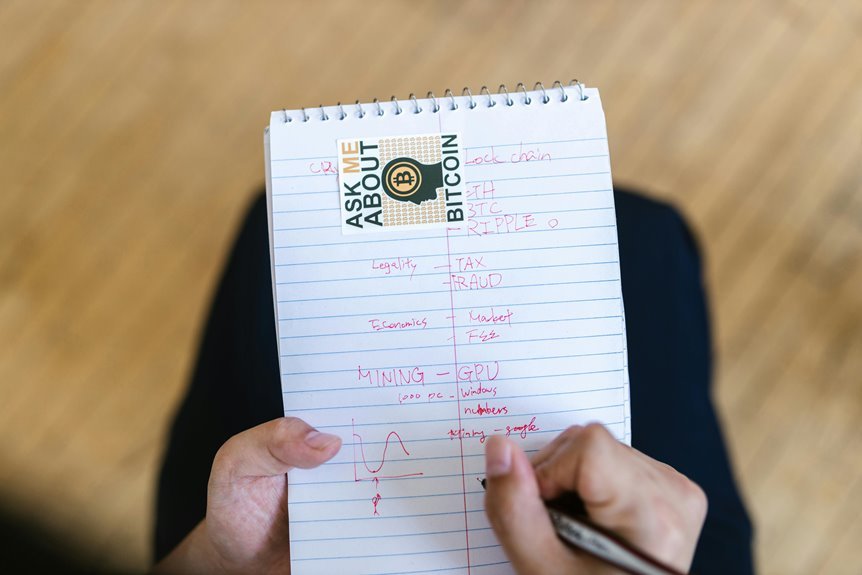 ASK ME
ABOUT
BITCOIN
lock chain
ETH
BTC
RIPPLE
Legality — TAX
- FRAUD
Economics - Market
- Fee
MINING — GPU
1000 pc - windows
numbers
Mining - google